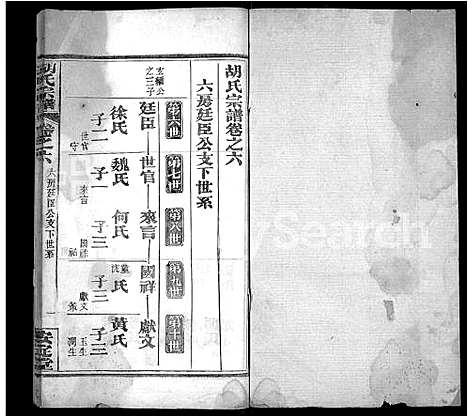 胡氏宗譜卷之六
六房廷臣公支下世系
第六世
第七世
第八世
第九世
第十世
玄綱公之三子
廷臣
世官
來言
國祥
獻文
徐氏
魏氏
何氏
氏
黃氏
子二
子一
子三
子三
子三
世官
守
來言
國祥
祐
獻文
玉生
潤生
胡氏宗譜
卷之六
六房廷臣公支下世系
一
安定堂
Search